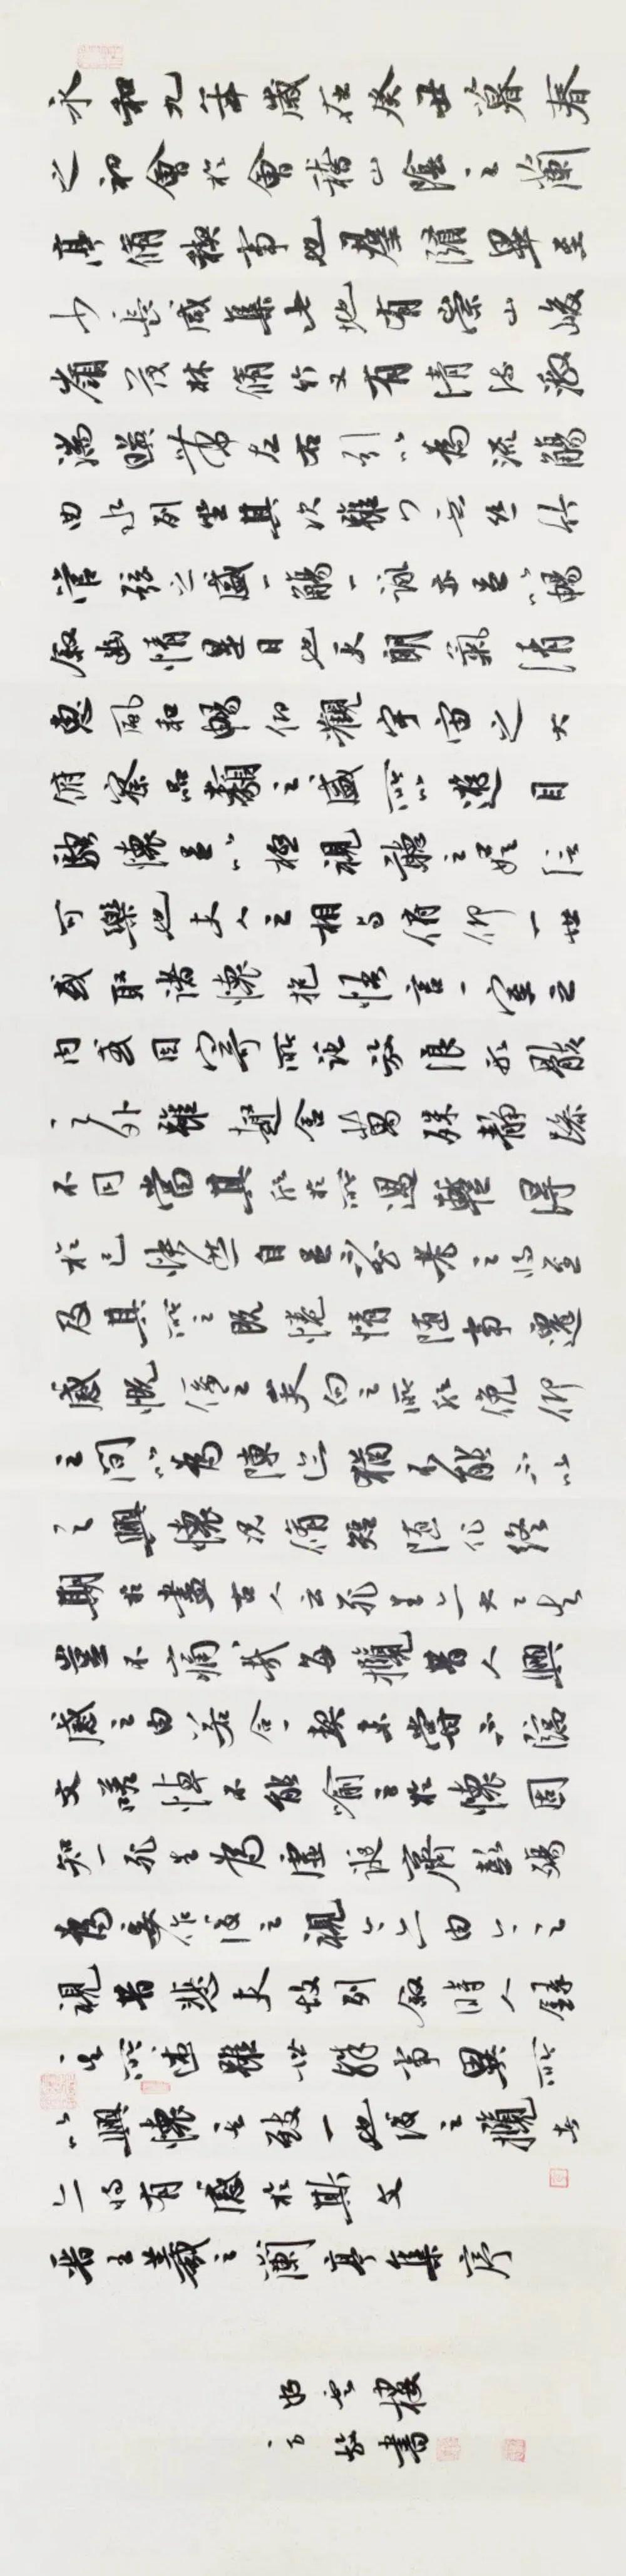 永和九年歲在癸丑暮春
之初會於會稽山陰之蘭
亭脩禊事也羣賢畢至
少長咸集此地有崇山峻
嶺茂林脩竹又有清流激
湍暎帶左右引以為流觴
曲水列坐其次雖無絲竹
管弦之盛一觴一詠亦足以暢
敘幽情是日也天朗氣清
惠風和暢仰觀宇宙之大
俯察品類之盛所以遊目
騁懷足以極視聽之娛信
可樂也夫人之相與俯仰一世
或取諸懷抱悟言一室之
內或因寄所託放浪形骸
之外雖趣舍萬殊靜躁
不同當其欣於所遇暫得
於己快然自足不知老之將至
及其所之既惓情隨事遷
感慨係之矣向之所欣俛仰
之間以為陳迹猶不能不以
之興懷況脩短隨化終
期於盡古人云死生亦大矣
豈不痛哉每攬昔人興
感之由若合一契未嘗不臨
文嗟悼不能喻之於懷固
知一死生為虛誕齊彭殤
為妄作後之視今亦由今之
視昔悲夫故列敘時人錄
其所述雖世殊事異所
以興懷其致一也後之攬者
亦將有感於斯文
晉王羲之蘭亭集序
樓
書